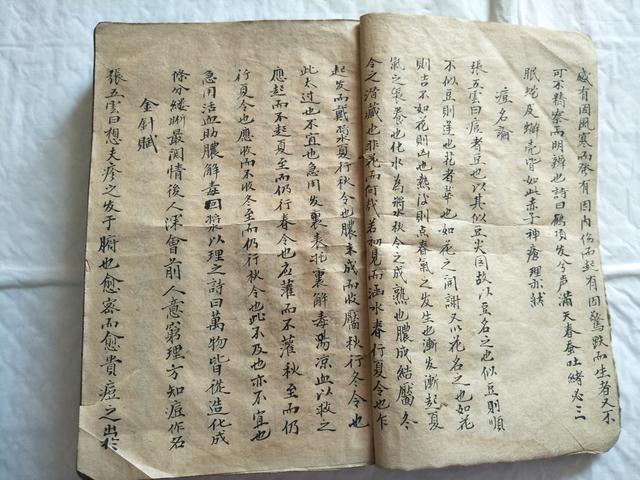 或有因風寒而發有因內傷而起有因驚跌而生者又不
可不精察而明辨也詩曰鵝項發兮声滿天春蚕吐緒必三
眠蛻及蟬壳皆如此赤子神瘡理亦然
痘名論
張五雲曰痘者豆也以其似豆矣因故以豆名之也似豆則順
不似豆則逆也花者華也如花之開謝又以花名之也如花
則吉不如花則凶也热没則点春氣之发生也漸发漸起夏
氣之長养也化水為漿秋令之成熟也膿成結靨冬
令之潛藏也非花而何哉若初見而涵水春行夏令也乍
起发而戴漿夏行秋令也膿未成而收靨秋行冬令也
此太过也不宜也急用发裏表托裏解毒陽凉血以救之
應起而不起夏至而仍行春令也应灌而不灌秋至而仍
行夏令也應收而不收冬至而仍行秋令也此不及也亦不宜也
急用活血助膿解毒回漿以理之詩曰萬物皆從造化成
條分缕晰最润情後人深會前人意窮理方知痘作名
金針賦
張五雲曰想夫疹之发于腑也愈密而愈貴痘之出於